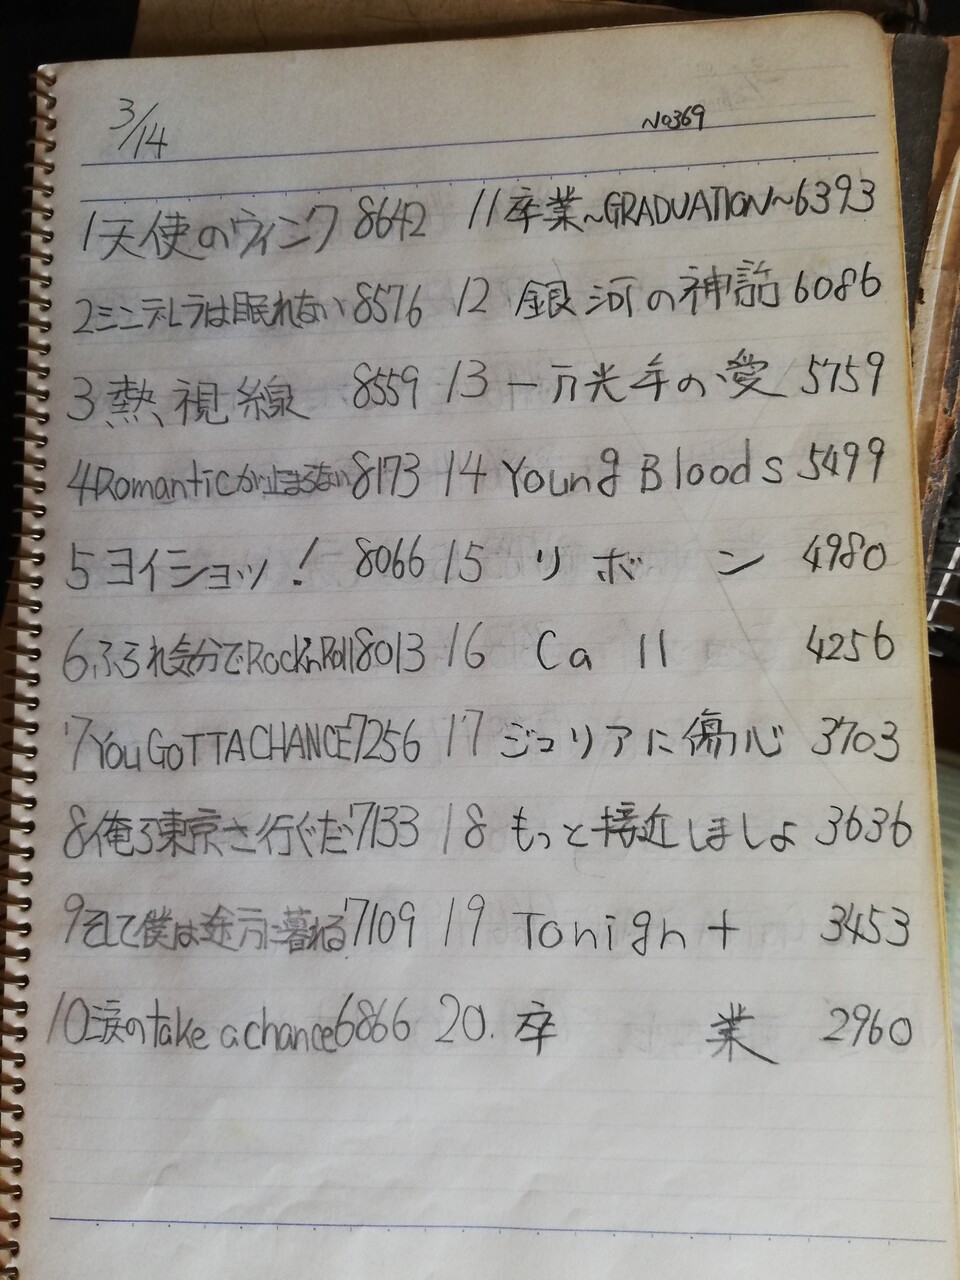 3/14
No369
1 天使のウィンク 8642
2 ミンデレラは眠れない 8576
3 熱視線 8559
4 Romanticが止まらない 8173
5 ヨイショッ! 8066
6 ふられ気分でRock'n Roll 8013
7 You GOTTA CHANCE 7256
8 俺ら東京さ行ぐだ 7133
9 そして僕は途方に暮れる 7109
10 涙のtake a chance 6866
11 卒業~GRADUATION~ 6393
12 銀河の神話 6086
13 一万光年の愛 5759
14 Young Bloods 5499
15 リボン 4980
16 Call 4256
17 ジュリアに傷心 3703
18 もっと接近しましょ 3636
19 Tonight 3453
20. 卒業 2960